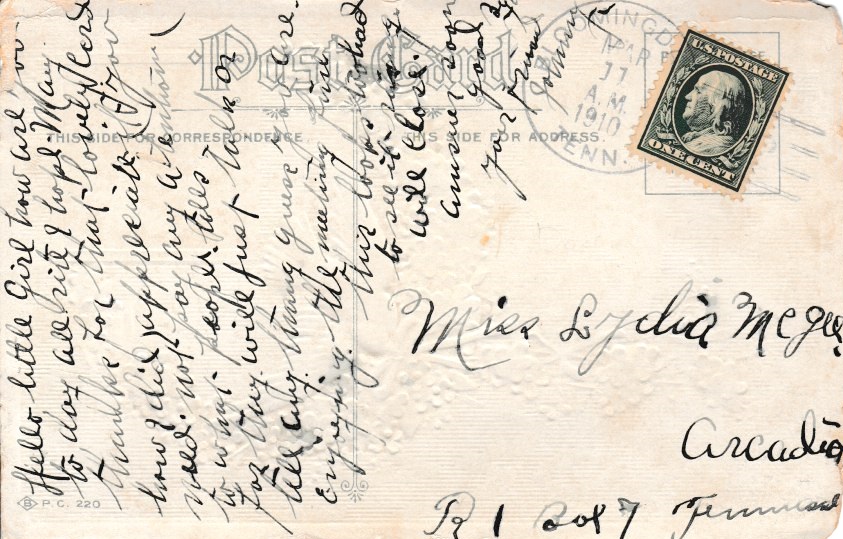 Post Card
THIS SIDE FOR CORRESPONDENCE
THIS SIDE FOR ADDRESS
BLOOMINGDALE
MAR
11
A.M.
1910
TENN.
U.S. POSTAGE
ONE CENT
Hello little Girl how are yo
to day all rite I hope. May
thanks for that lovely card
how I did appreciate it you
need not pay any atention
to what people tells
for they will just talk or
tell any thing guess you are
Enjoying the meeting fine
this looks so bad
to see it
will close.
answer soon
good By
your friend
Johnny
Miss Lydia McGee
Arcadia
R 1 Box 7 Tennessee
B P.C. 220